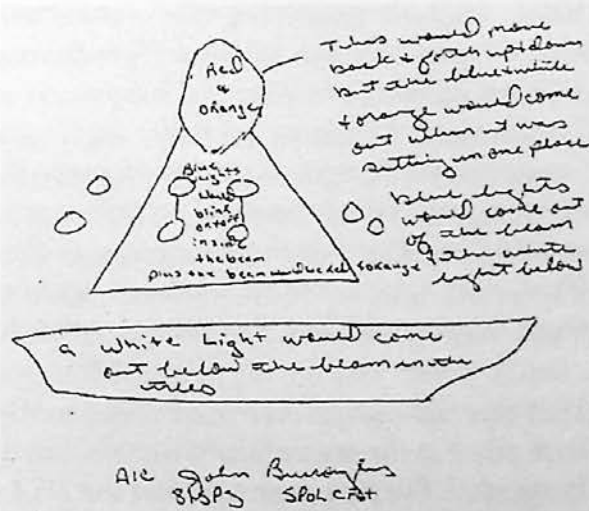 Red
&
Orange
This would move
back & forth up & down
but the blue & white
& orange would come
out when it was
sitting in one place
Blue
Lights
that
blink
on & off
inside
the beam
plus the beam would be red & orange
Blue lights
would come out
of the beam
& the white
light below
a White Light would come
out below the beam in the
trees
A1C John Burroughs
81SPS